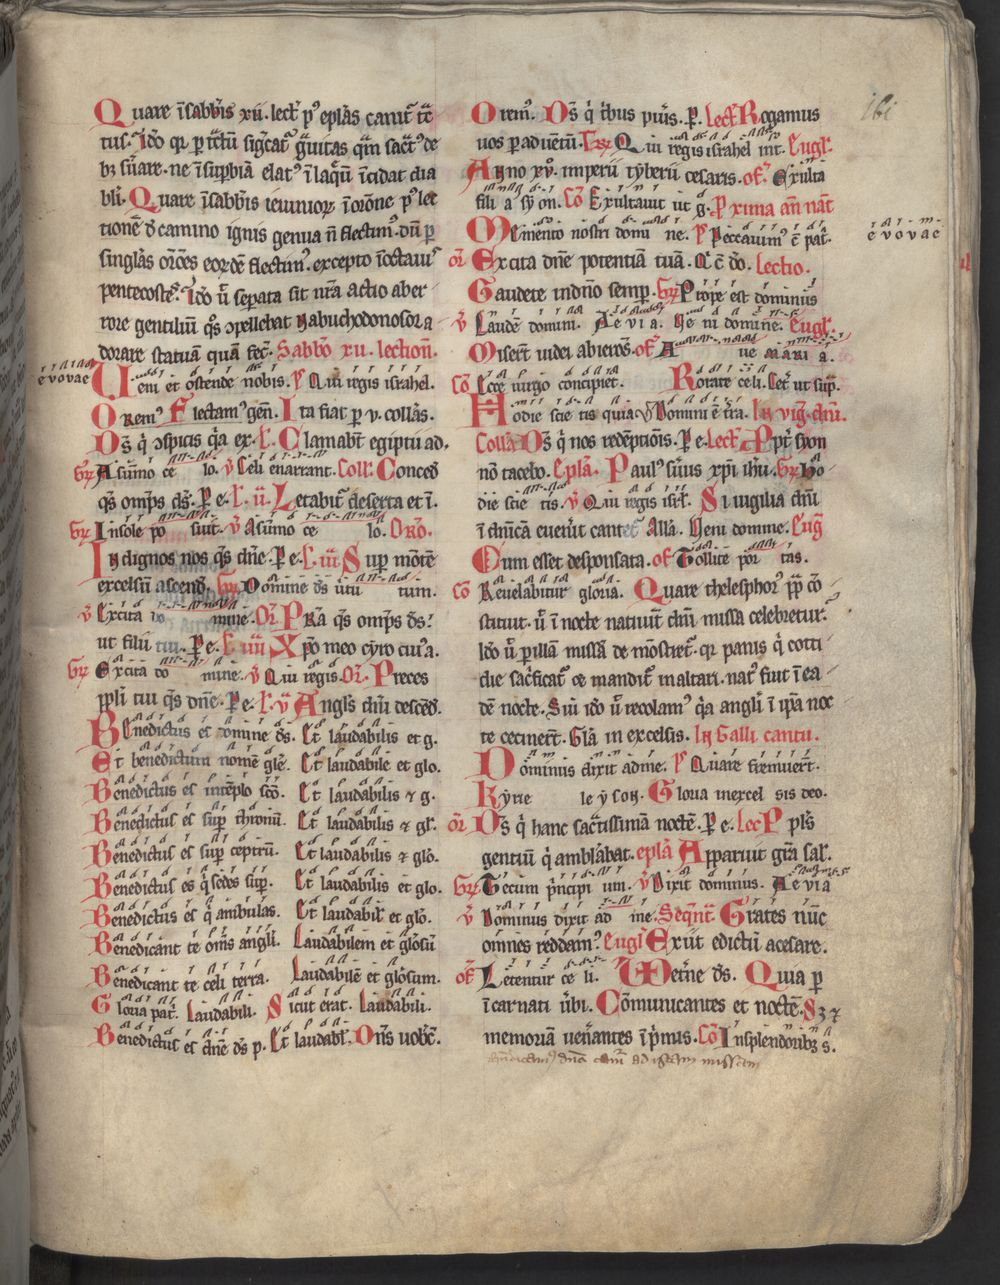 Quare ī sabb̄is xii. lect̄. p⁹ ep̄las canit᷑ t̄c
tus. Ido qꝛ p t̄ctū siḡcat᷑ g̈uitas q̄m sac̄t⁹ de
bꝫ s̄uare. ne ī sup̄biā elat⁹ ī laq̄ū īcidat dia
bli. Quare ī sabb̄is ieiunioꝝ ī or̄one p⁹ lec
tionē d̄ camino ignis genua n̄ flectim⁹. dū p
singl̄as or̄oēs eord̄ē flectim⁹. excepto ī octaua
pentecostes. Ido ū̄ sep̄ata sit nr̄a actio ab er
rore gentiliū q̄s ɔpellebat Nabuchodonosor a
dorare statuā quā fec̄. Sabb̄o xii. lection̄.
e v o v a e Veni et ostende nobis. P̄ Qui regis israhel.
Orem⁹. Flectam⁹ gen̄. Ita fiat p v. coll̄as.
Ds̄ q̇ ɔspicis q̇a ex. L̄. Clamab̄t egiptii ad.
Gr̄ A sūmo ce lo. v̄ Celi enarrant. Coll̄. Conced̄
q̄s om̄ps ds̄. P e. L̄. ii. Letabit᷑ deserta et ī.
Gr̄ In sole po suit. v̄ A sūmo ce lo. Or̄o.
Indignos nos q̄s dn̄e. P e. L̄. iii. Sup̄ mōtē
excelsū ascend̄. Gr̄ Domine ds̄ uirtu tum.
v̄ Excita do mine. Or̄. Pr̄a q̄s om̄ps ds̄.
ut filii tui. P e. L̄. iiii. Xp̄o meo cyro cui⁹ a.
Gr̄ Excita do mine. v̄ Qui regis. Or̄. Preces
pp̄li tui q̄s dn̄e. P e. L̄. v Angl̄s dn̄i descēd̄.
Benedictus es domine ds̄. Et laudabilis et g.
Et benedictum nomē gl̄e. Et laudabile et glo.
Benedictus es in tēplo sc̄o. Et laudabilis ⁊ g.
Benedictus es sup̄ thronū. Et laudabilis ⁊ gl̄.
Benedictus es sup̄ ceptrū. Et laudabilis ⁊ glo.
Benedictus es q̇ sedes sup̄. Et laudabilis et glo.
Benedictus es q̇ ambulas. Et laudabil̄ et glo.
Benedicant te om̄s angli. Laudabilem et gl̄osū
Benedicant te celi terra. Laudabilē et gl̄osum.
Gloria pat̄. Laudabili. Sicut erat. Laudabili.
Benedictus es dn̄e ds̄ p. Et laudabl̄. Om̄s uobc̄.
Orem⁹. Ds̄ q̇ t̄bus pūis. P. Lect̄. Rogamus
uos p aduētū. Gr̄ Qui regis israhel int. Eugl̄.
Anno xv⁰. imperii tyberii cesaris. of̄. Exulta
fili a sy on. Cō Exultauit ut g. Proxima an̄ nāt
Memento nostri domi ne. P̄ Peccauim⁹ c̄ pat̄. e v o v a e
or̄ Excita dn̄e potentiā tuā. Lectio.
Gaudete in dn̄o semp̄. Gr̄ Prope est dominus
v̄ Laudē domini. Ae v i a. Ve ni domine. Eugl̄.
Miser̄t iudei ab ieros̄. of̄ A ue maria a.
Cō Ecce uirgo concipiet. Rorate celi. Cet̄ ut sup̄.
Hodie scie tis quia v̄ Domini ē t̄ra. In viḡ. dn̄i.
Collā Ds̄ q̇ nos redēptiōis. P e. Lect̄. Ppt̄ syon
nō tacebo. Ep̄la. Paul⁹ s̄uus xp̄i ih̄u. Gr̄ Ho
die scie tis. v̄ Qui regis isrl̄. Si uigilia dn̄i
ī dn̄icā euen̄it cantet᷑ All̄a. Veni domine. Eug̃
Cum esset desponsata. of̄ Tollite por tas.
cō Reuelabitur gloria. Quare thelesphor⁹ pp̄ cō
stituit. ū̄ ī nocte natiuit᷑ dn̄i missa celebretur.
Ido ū̄ p illā missā demōstret᷑. qꝛ panis q̇ cotti
die sac̄ficat᷑ ⁊ mandit᷑ in altari. nat᷑ fuit ī ea
dē nocte. Siū ido ū̄ recolam⁹ q̇a angli ī ip̄a noc
te cecinerūt. Gl̄a in excelsis. In Galli cantu.
Dominus dixit ad me. P̄ Quare fremuer̄t.
Kyrie le y son. Gloria in excel sis deo.
or̄ Ds̄ q̇ hanc sac̄tissimā noctē. P e. Lec̄ Ppl̄s
gentiū q̇ amb̄labat. ep̄la Apparuit gr̄a sal̄.
Gr̄ Tecum p̄ncipi um. v̄ Dixit dominus. Ae v i a
v̄ Dominus dixit ad me. Seqn̄t̄ Grates nūc
omnes reddam⁹. Eugl̄ Exiit edictū a cesare.
of̄ Letentur ce li. Vet̄ne ds̄. Quia p
īcarnati ūbi. Cōmunicantes et noctē. Sꝫ ⁊
memoriā uen̄antes ī p̄mus. Cō In splendoribꝫ s.